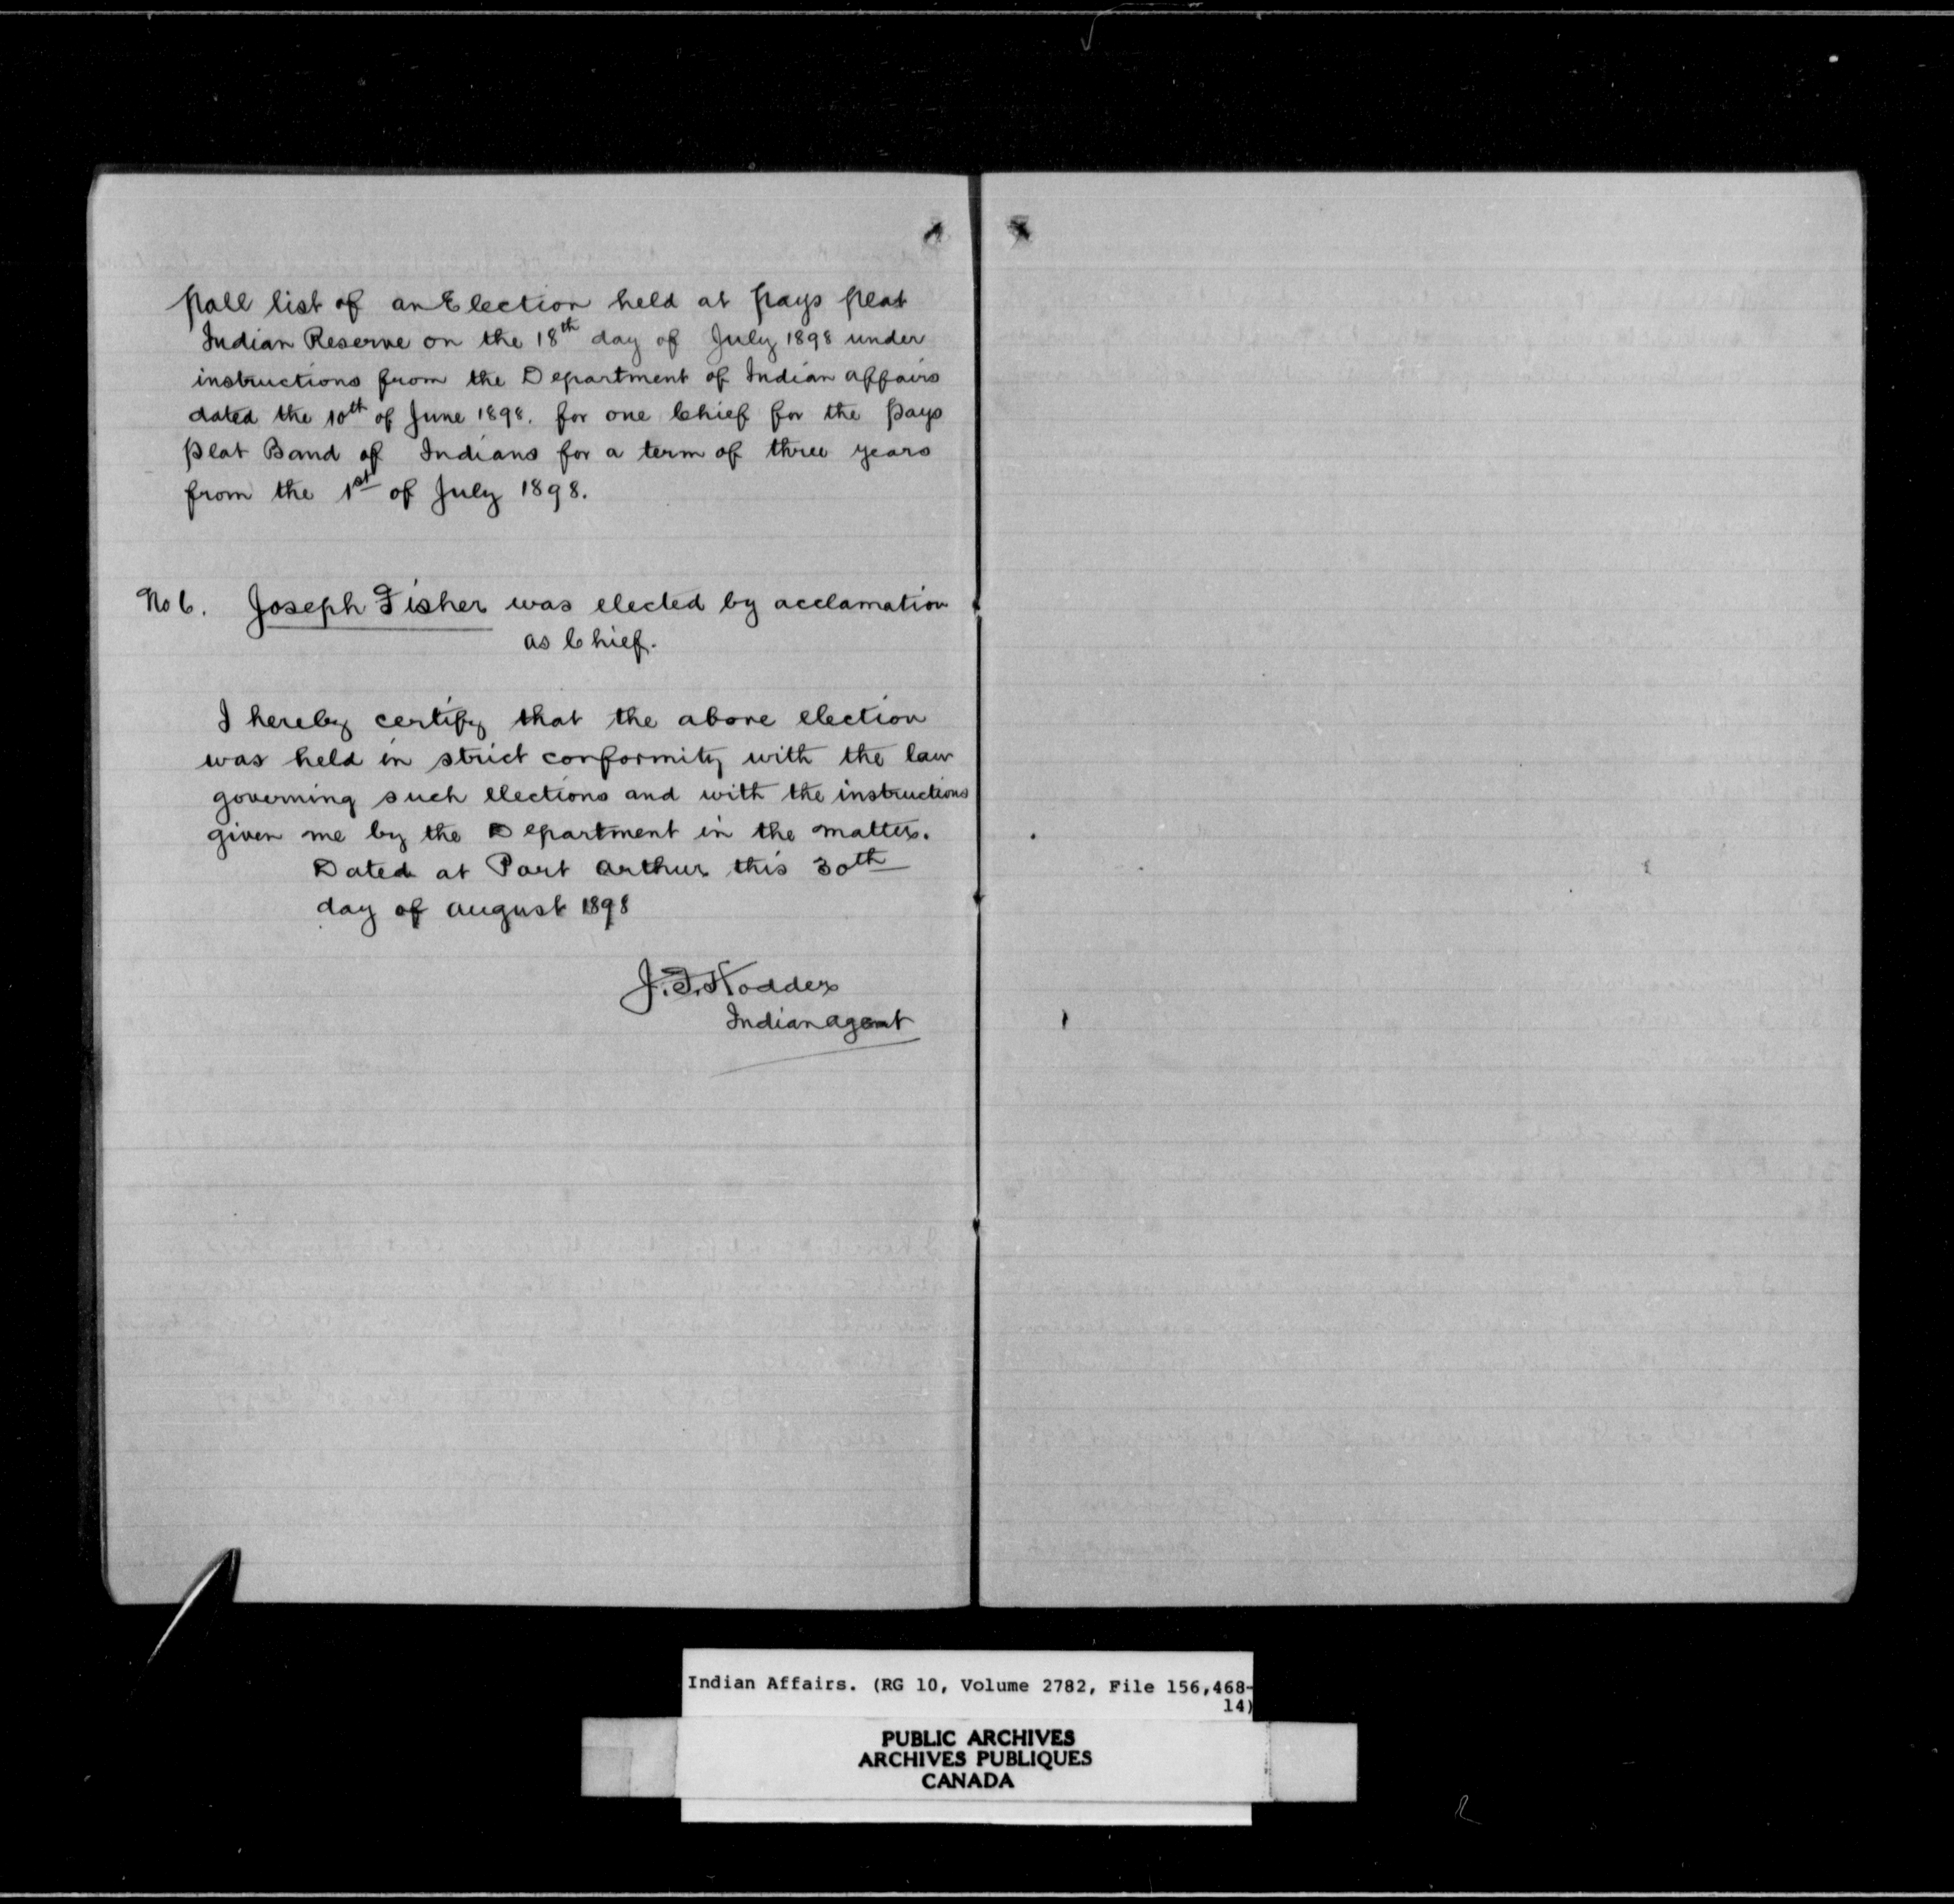 Poll list of an Election held at Pays Plat
Indian Reserve on the 18th day of July 1898 under
instructions from the Department of Indian Affairs
dated the 10th of June 1898. for one Chief for the Pays
Plat Band of Indians for a term of three years
from the 1st of July 1898.
No 6. Joseph Fisher was elected by acclamation
as Chief.
I hereby certify that the above election
was held in strict conformity with the law
governing such elections and with the instructions
given me by the Department in the matter.
Dated at Port Arthur this 30th
day of August 1898
J. F. Hodder
Indian Agent
Indian Affairs. (RG 10, Volume 2782, File 156,468-
14)
PUBLIC ARCHIVES
ARCHIVES PUBLIQUES
CANADA